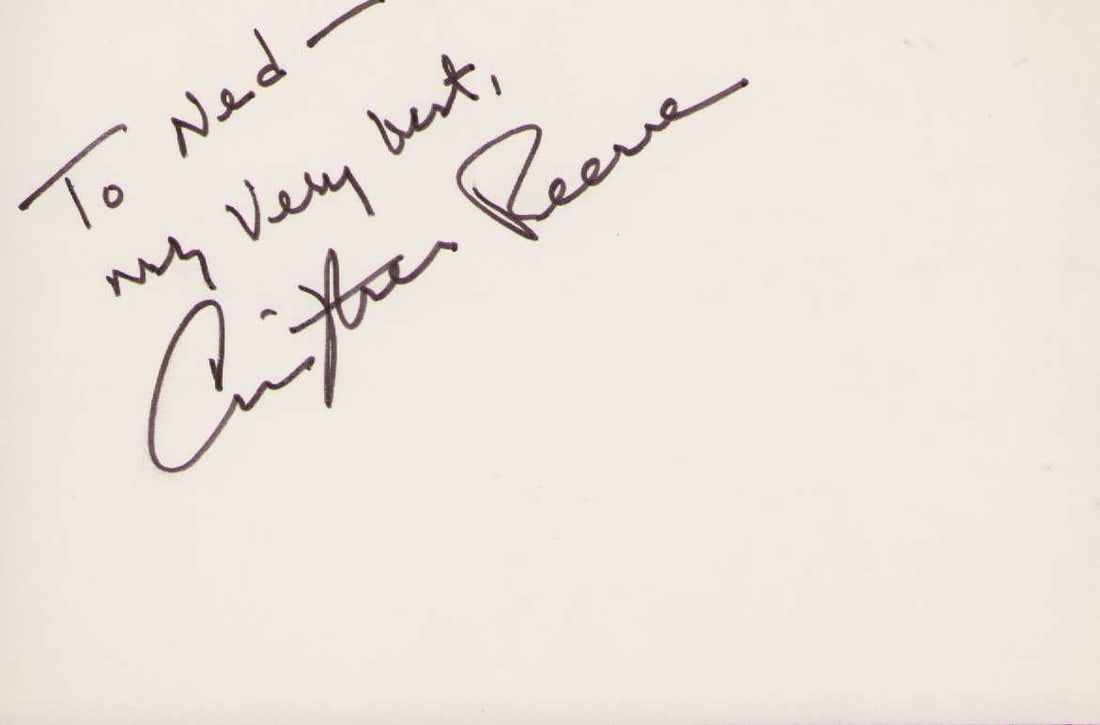 To Ned —
my very best,
Christopher Reeve